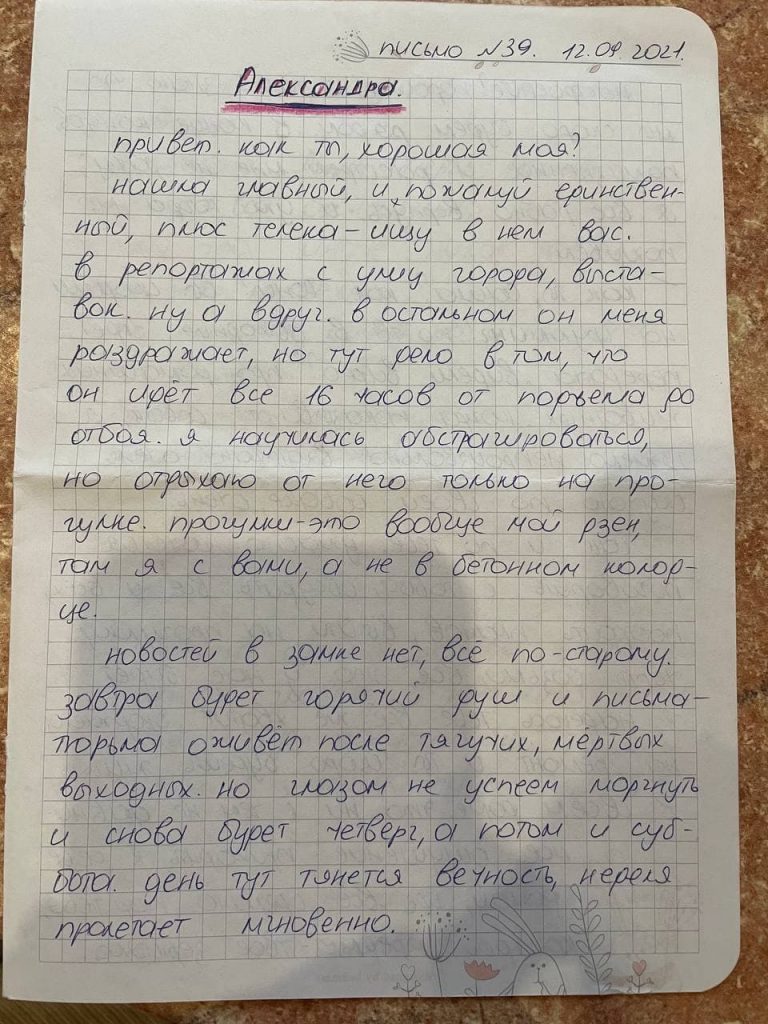 письмо №39. 12.09.2021.
Александра.
привет. как ты, хорошая моя?
нашла главный, и, пожалуй единствен-
ный, плюс телека – ищу в нем вас.
в репортажах с улиц города, выста-
вок. ну а вдруг. в остальном он меня
раздражает, но тут дело в том, что
он идёт все 16 часов от подъема до
отбоя. я научилась абстрагироваться,
но отдыхаю от него только на про-
гулке. прогулки – это вообще мой дзен,
там я с вами, а не в бетонном колод-
це.
новостей в замке нет, всё по-старому.
завтра будет горячий душ и письма –
тюрьма оживёт после тягучих, мёртвых
выходных. но глазом не успеем моргнуть
и снова будет четверг, а потом и суб-
бота. день тут тянется вечность, неделя
пролетает мгновенно.